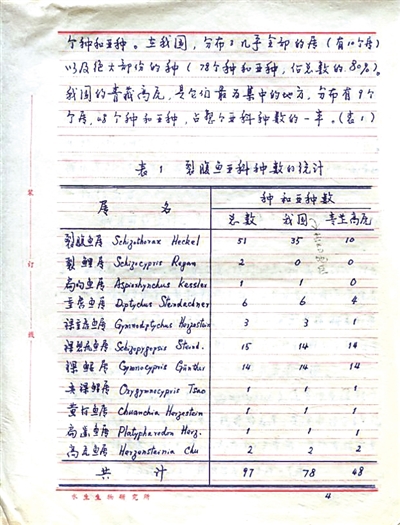 个种和亚种。在我国，分布了几乎全部的属（有10个属）
以及绝大部份的种（78个种和亚种，占总数的80%）。
我国的青藏高原，是它们最为集中的地方，分布有9个
个属，48个种和亚种，占整个亚科种数的一半。（表1）
表1 裂腹鱼亚科种数的统计
属名 种和亚种数
总数 我国 青藏高原
裂腹鱼属 Schizothorax Heckel 51 35 10
裂鲤属 Schizocypris Regan 2 0 0
扁吻鱼属 Aspiorhynchus Kessler 1 1 0
重唇鱼属 Diptychus Steindachner 6 6 4
裸重唇鱼属 Gymnodptychus Herzestein 3 3 1
裸裂尻鱼属 Schizopygopsis Steind. 15 14 14
裸鲤属 Gymnocypris Günther 14 14 14
尖裸鲤属 Oxygymnocypris Tsao 1 1 1
黄河鱼属 Chuanchia Herzestein 1 1 1
扁咽鱼属 Platypharodon Herz. 1 1 1
高原鱼属 Herzensteinia Chu 2 2 2
共计 97 78 48
装
订
线
水生生物研究所
4